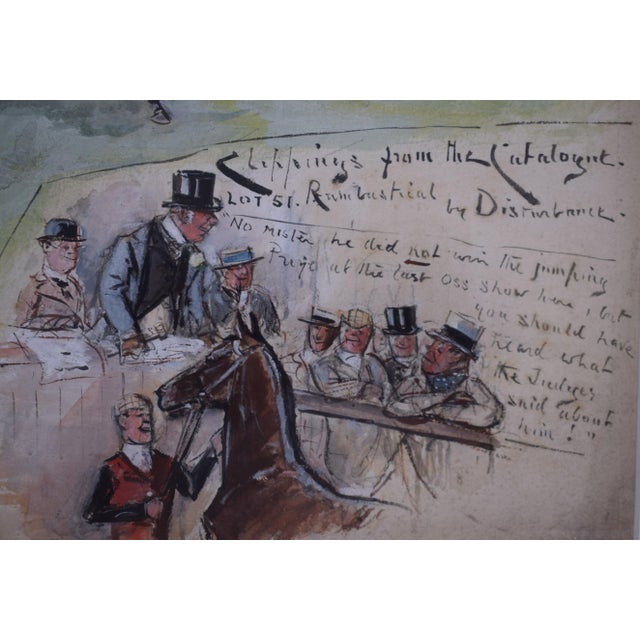 Clippings from the Catalogue.
LOT 51. Rumbustical by Disturbance.
"No Mister, he did not win the jumping
Prize at the last Oss show here, but
you should have
heard what
the Judges
said about
him!"